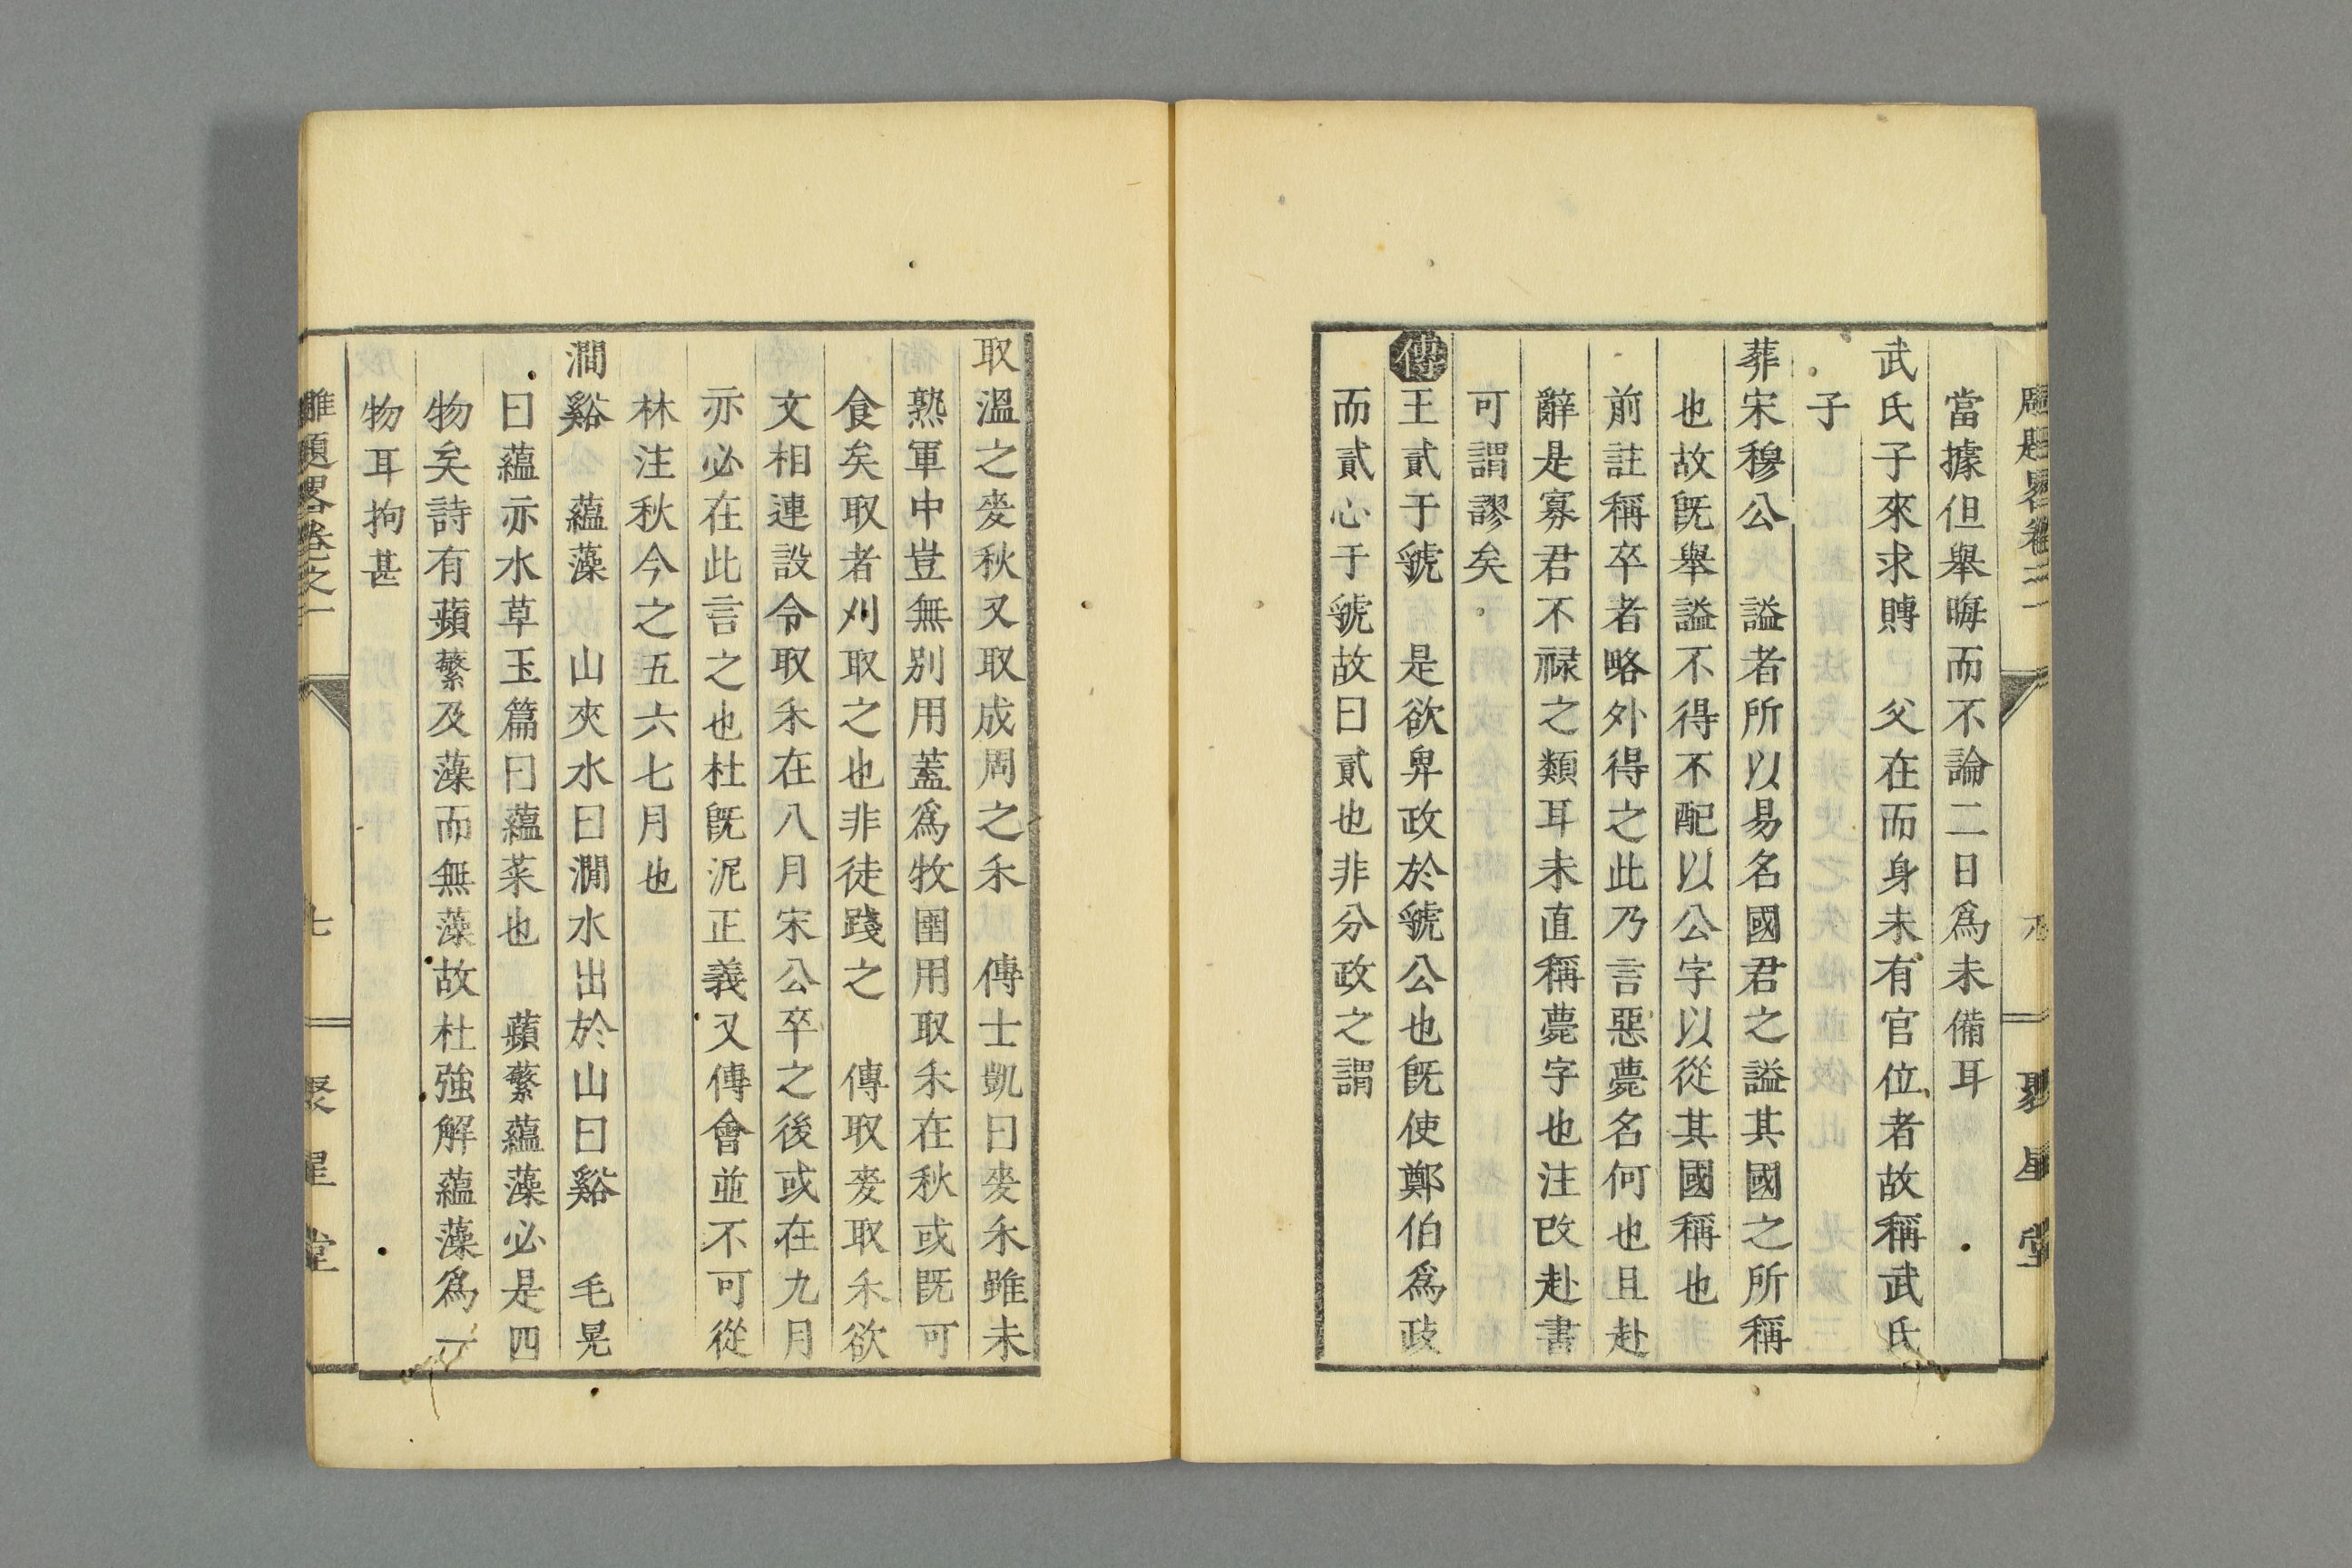 當據但舉晦而不論二日爲未備耳
武氏子來求賻　父在而身未有官位者故稱武氏
子
葬宋穆公　謚者所以易名國君之謚其國之所稱
也故既舉謚不得不配以公字以從其國稱也
前註稱卒者略外得之此乃言惡薨名何也且赴
辭是寡君不祿之類耳未直稱薨字也注改赴書
可謂謬矣
傳王貳于虢　是欲卑政於虢公也既使鄭伯爲政
而貳心于虢故曰貳也非分政之謂
取溫之麥秋又取成周之禾　傳士凱曰麥禾雖未
熟軍中豈無別用蓋爲牧圉用取禾在秋或既可
食矣取者刈取之也非徒踐之　傳取麥取禾欲
文相連設令取禾在八月宋公卒之後或在九月
亦必在此言之也杜既泥正義又傅會並不可從
林注秋今之五六七月也
澗谿　蘊藻　山夾水曰澗水出於山曰谿　毛晃
曰蘊亦水草玉篇曰蘊菜也　蘋蘩蘊藻必是四
物矣詩有蘋蘩及藻而無薻故杜強解蘊藻爲一
物耳拘甚
雕題畧卷之一
七
聚星堂